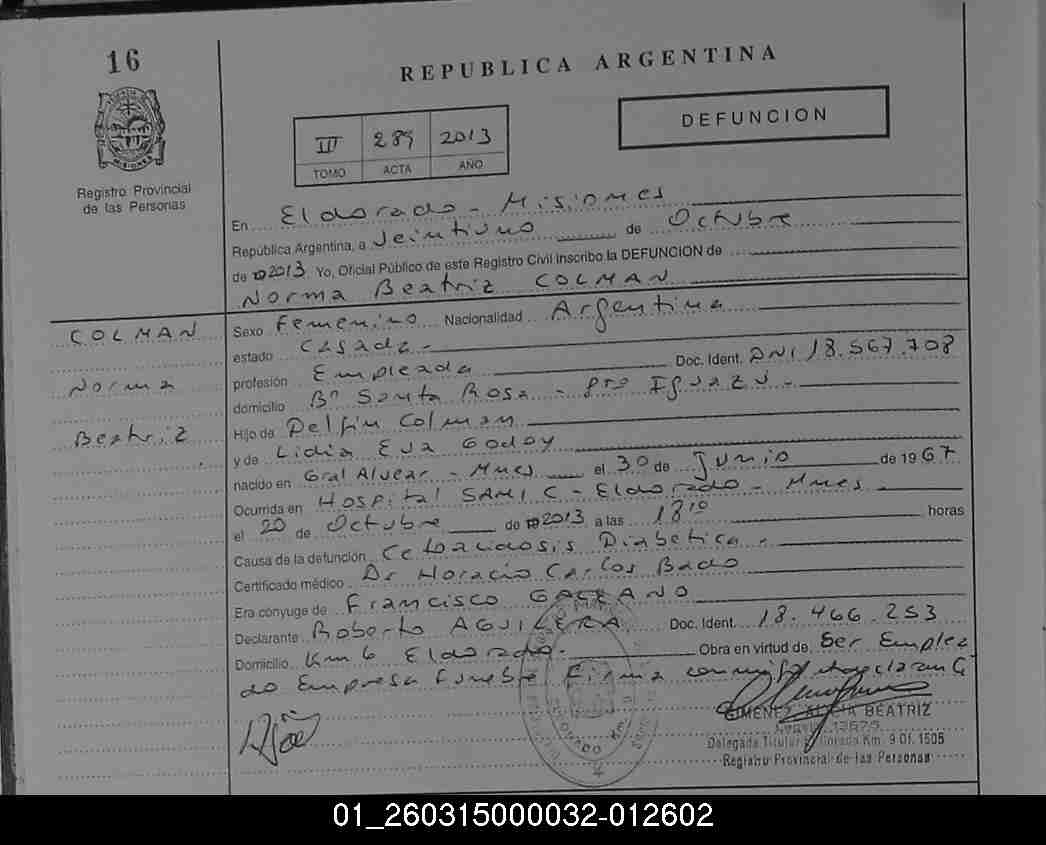 16
REPUBLICA ARGENTINA
DEFUNCION
III 289 2013
TOMO ACTA AÑO
Registro Provincial
de las Personas
En Eldorado - Misiones
República Argentina, a Veintiuno de Octubre
de 2013 Yo, Oficial Público de este Registro Civil inscribo la DEFUNCION de
Norma Beatriz COLMAN
COLMAN
Norma
Beatriz
Sexo Femenino Nacionalidad Argentina
estado Casada -
profesión Empleada Doc. Ident. DNI 18.567.708
domicilio Bº Santa Rosa - Pto Iguazú -
Hijo de Delfín Colman
y de Lidia Eva Godoy
nacido en Gral Alvear - Mnes el 30 de Junio de 1967
Ocurrida en Hospital SAMIC - Eldorado - Mnes.
el 20 de Octubre de 2013 a las 18¹⁰ horas
Causa de la defunción Cetoacidosis Diabetica -
Certificado médico Dr Horacio Carlos Bado
Era cónyuge de Francisco GALEANO
Declarante Roberto AGUILERA Doc. Ident. 18.466.253
Domicilio Km 6 Eldorado - Obra en virtud de Ser Emplea
do Empresa Funebre Firma conmigo
GIMENEZ ALICIA BEATRIZ
Delegada Titular Eldorado Km. 9 Of. 1505
Registro Provincial de las Personas
01_260315000032-012602